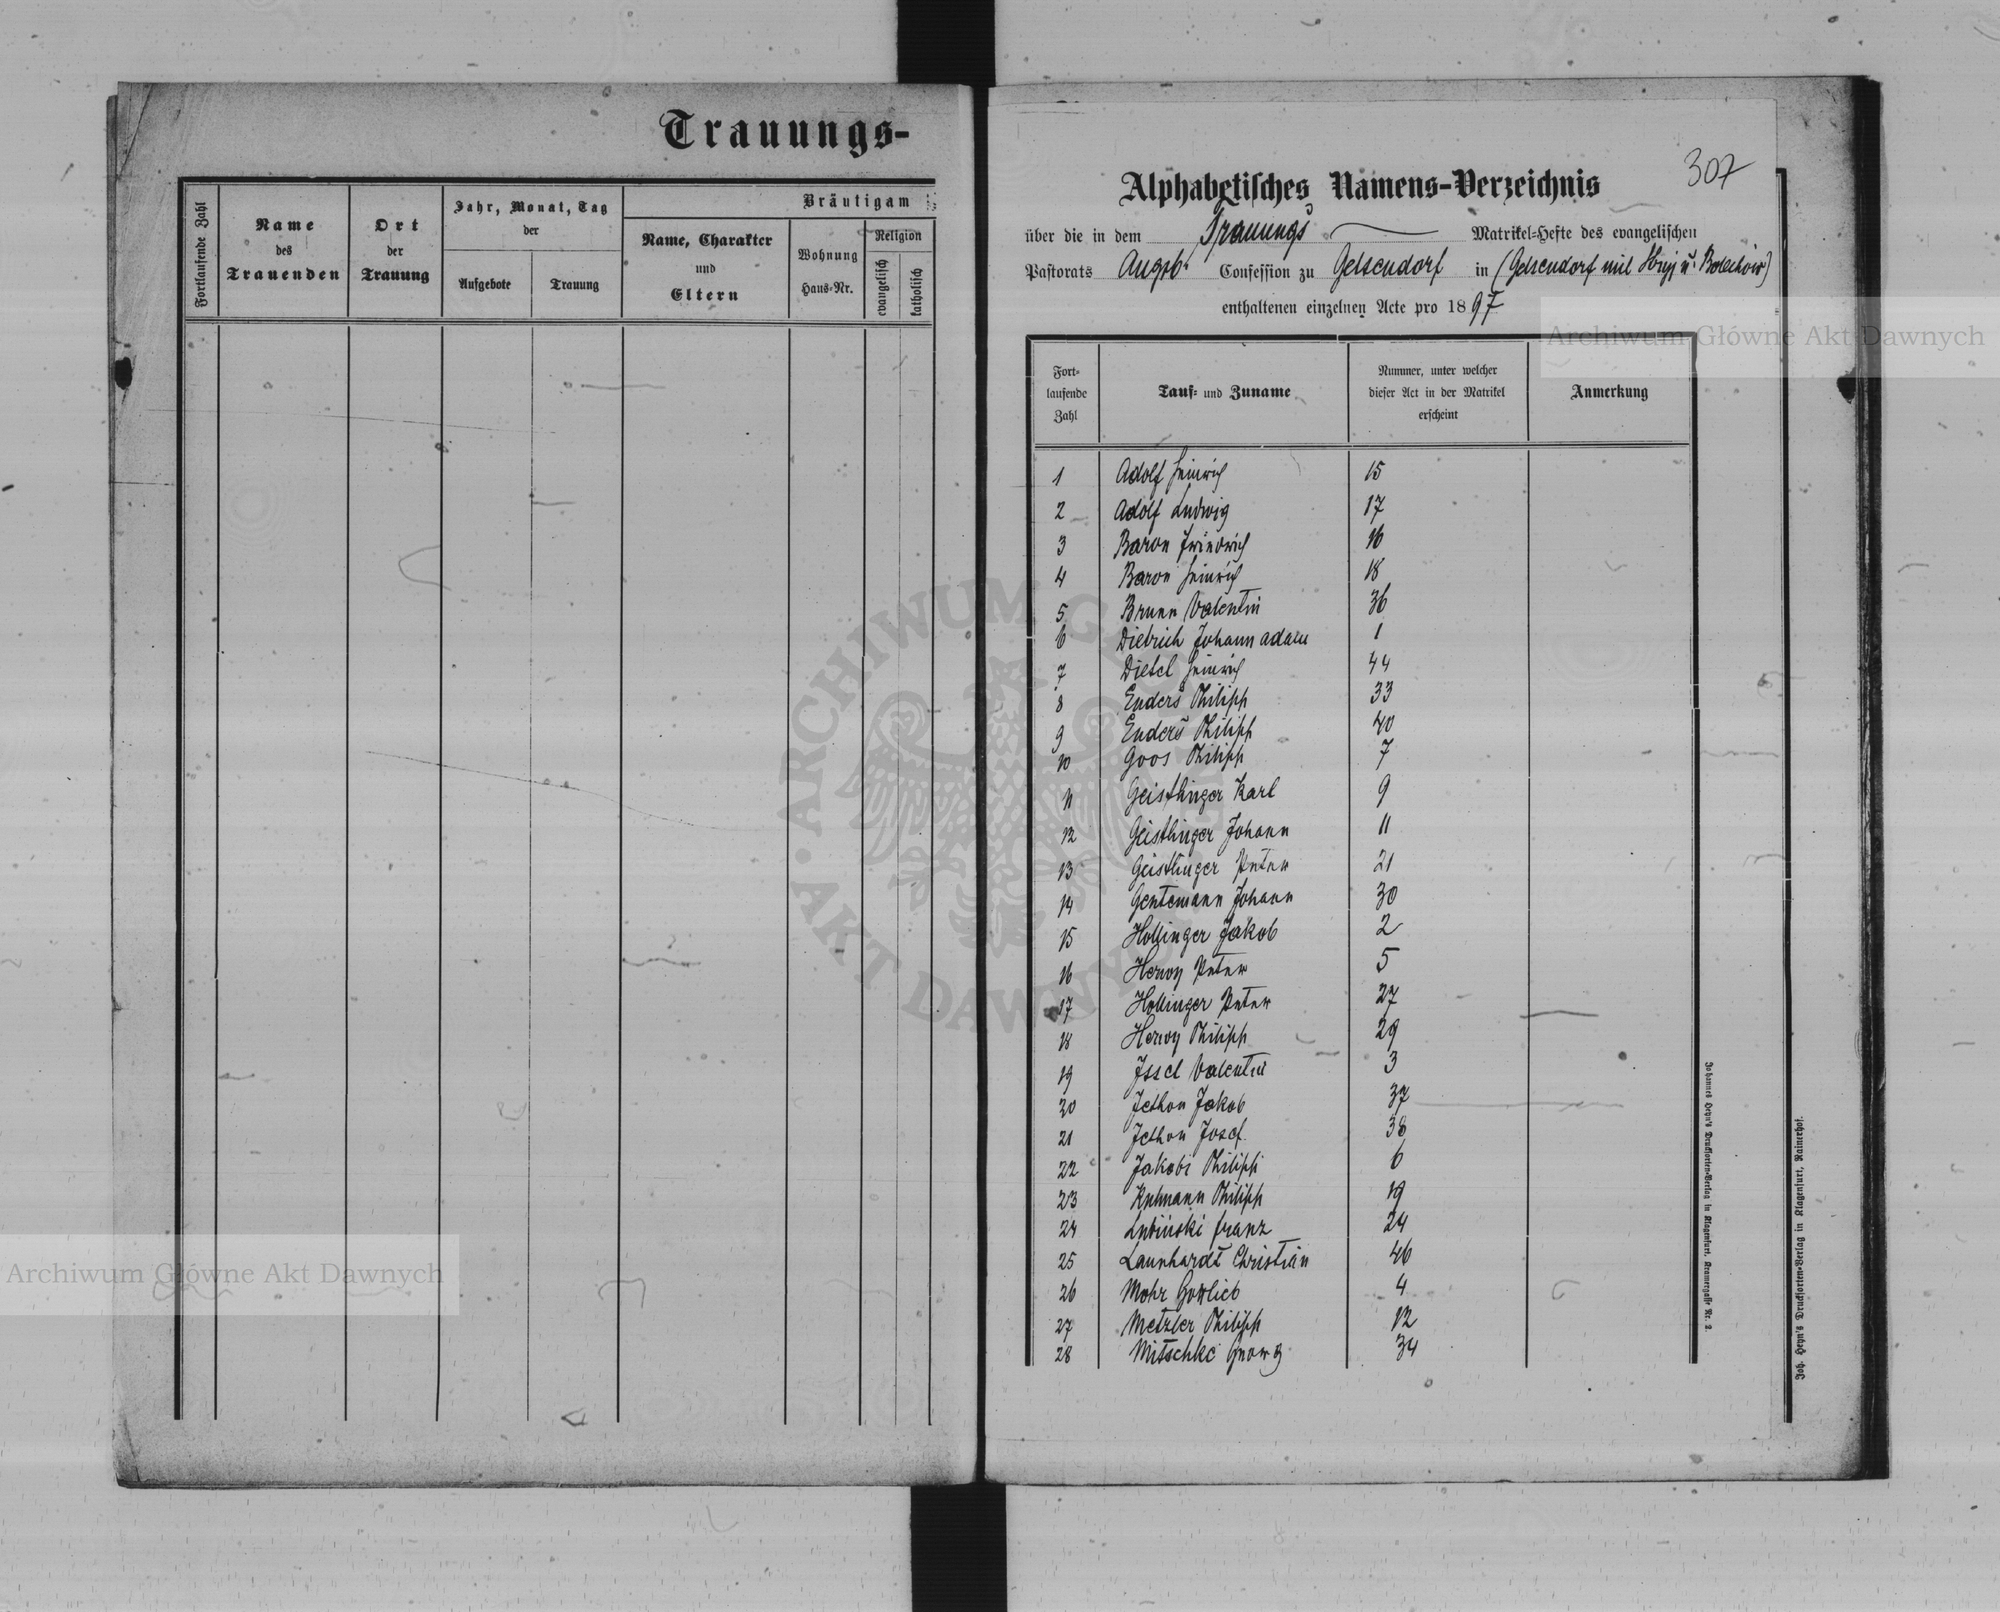 Trauungs-
Fortlaufende Zahl
Name
des
Trauenden
Ort
der
Trauung
Jahr, Monat, Tag
der
Aufgebote
Trauung
Bräutigam
Name, Charakter
und
Eltern
Wohnung
Haus-Nr.
Religion
evangelisch
katholisch
307
Alphabetisches Namens-Verzeichnis
über die in dem Trauungs Matrikel-Hefte des evangelischen
Pastorats Augsb. Confession zu Gelsendorf in (Gelsendorf mit Stryj u. Bolechow)
enthaltenen einzelnen Acte pro 1897
Fort-
laufende
Zahl
Tauf- und Zuname
Nummer, unter welcher
dieser Act in der Matrikel
erscheint
Anmerkung
1 Adolf Heinrich 15
2 Adolf Ludwig 17
3 Baron Friedrich 16
4 Baron Heinrich 18
5 Brunn Valentin 36
6 Dietrich Johann Adam 1
7 Dietel Heinrich 44
8 Enders Philipp 33
9 Enders Philipp 40
10 Goos Philipp 7
11 Geistlinger Karl 9
12 Geistlinger Johann 11
13 Geistlinger Peter 21
14 Gentemann Johann 30
15 Hollinger Jakob 2
16 Hervy Peter 5
17 Hollinger Peter 27
18 Hervy Philipp 29
19 Issel Valentin 3
20 Jethon Jakob 37
21 Jethon Josef 38
22 Jakobi Philipp 6
23 Philipp 19
24 Lubinski Franz 24
25 Launhardt Christian 46
26 Mohr Gottlieb 4
27 Metzler Philipp 12
28 Mitschke Georg 34
Johannes Heyn's Drucksorten-Verlag in Klagenfurt, Kramergasse Nr. 2.
Joh. Heyn's Drucksorten-Verlag in Klagenfurt, Rainerhof.
Archiwum Główne Akt Dawnych
Archiwum Główne Akt Dawnych
ARCHIWUM GŁÓWNE AKT DAWNYCH